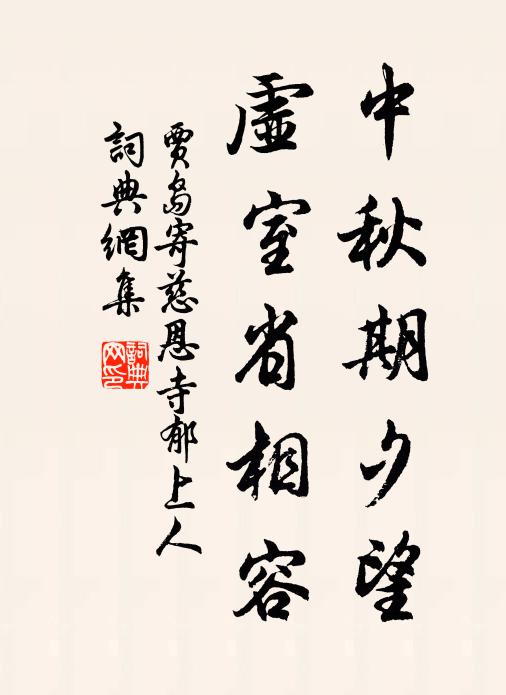 中秋期夕望
虛室省相容
賈島寄慈恩寺郁上人
詞典網集
詞典
网印